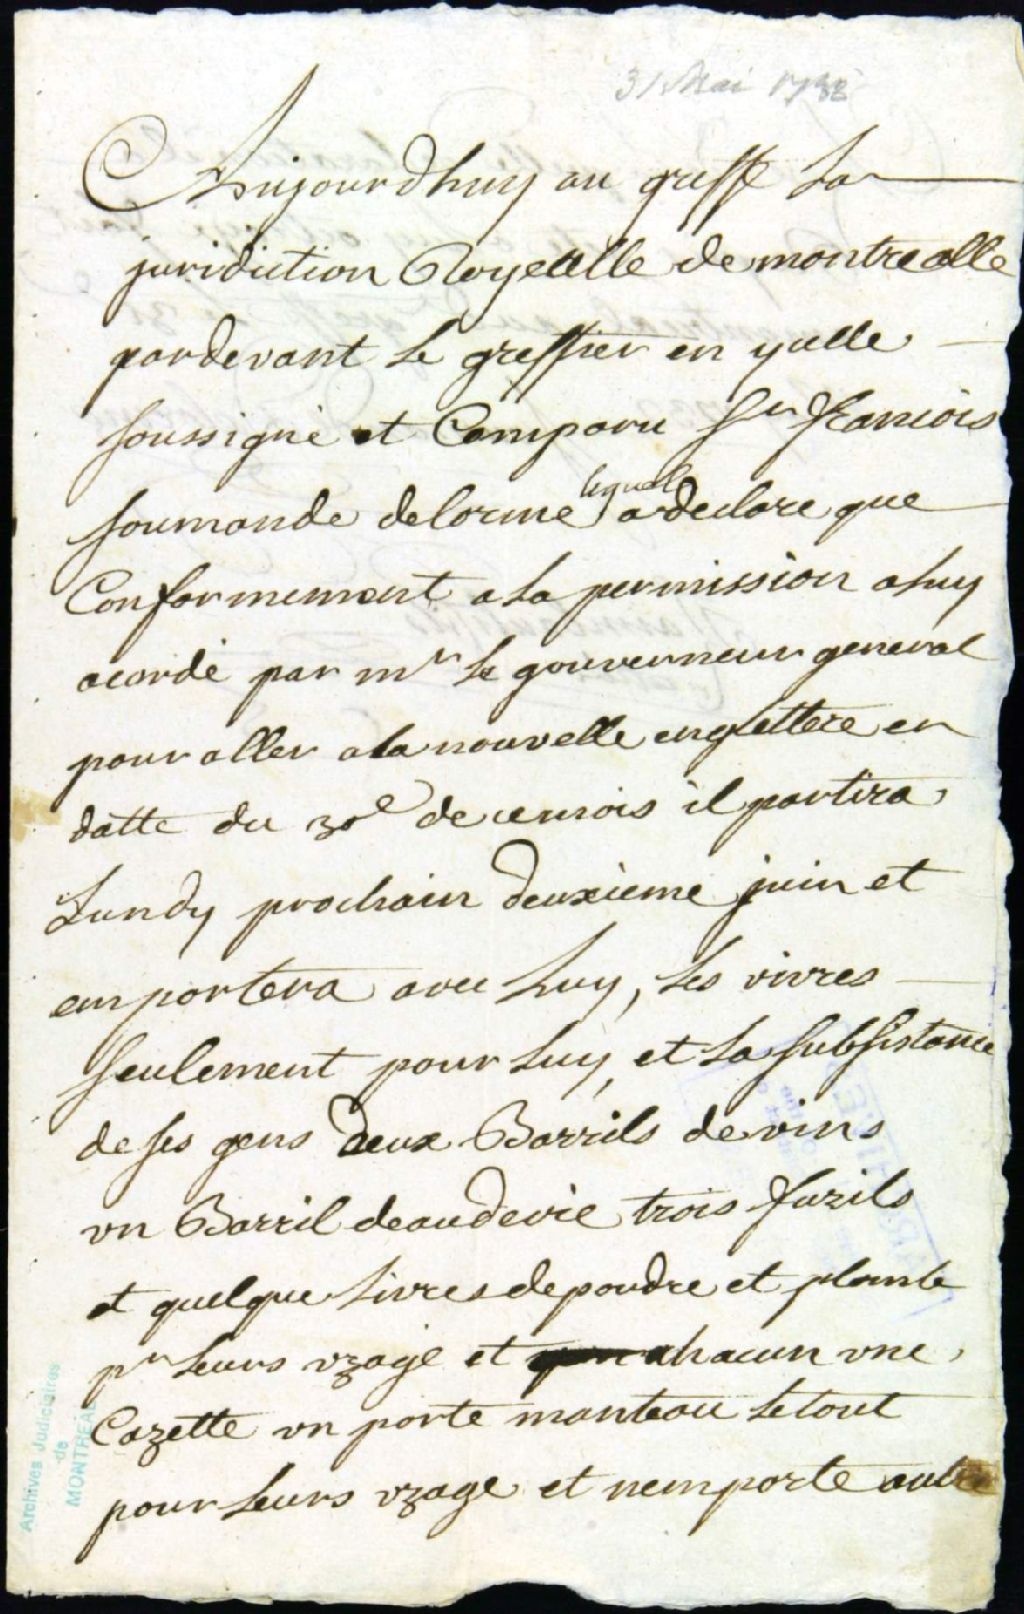 31 Mai 1738
Aujourdhuy au greffe La
juridiction Royealle de montrealle
pardevant le greffier en ycelle
soussigné et Comparu Sr francois
soumande delorme lequel a declare que
Conformement a la permission a luy
acordé par mr le gouverneur general
pour aller a la nouvelle anglettere en
datte du 30e de ce mois il partira
Lundy prochain deuxieme juin et
emportera avec luy, les vivres
seulement pour luy, et la subsistance
de ses gens deux Barrils de vins
un Barril deaudevie trois fuzils
et quelque livres de poudre et plomb
pr leurs uzage et chacun une
Cazette un porte manteau le tout
pour leurs uzage et nemporte autre
Archives Judiciaires
de
MONTREAL